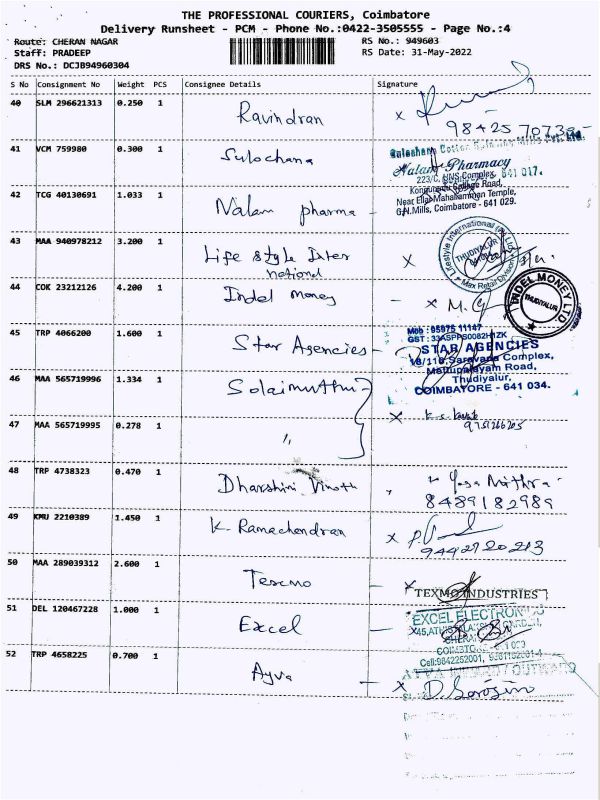 THE PROFESSIONAL COURIERS, Coimbatore
Delivery Runsheet - PCM - Phone No.:0422-3505555 - Page No.:4
Route: CHERAN NAGAR RS No.: 949603
Staff: PRADEEP RS Date: 31-May-2022
DRS No.: DCJB94960304
S No Consignment No Weight PCS Consignee Details Signature
40 SLM 296621313 0.250 1 Ravindran x
98425 70739
41 VCM 759980 0.300 1 Sulochana
Nalam Pharmacy
223/C, HNS Complex, 641 017.
College Road,
42 TCG 40130691 1.033 1 Nalam pharma -
Near Ellai Mahaliamman Temple,
G.N.Mills, Coimbatore - 641 029.
43 MAA 940978212 3.200 1 Life style Inter x
national
Lifestyle International (P) Ltd
THUDIYALUR
Max Retail Division
44 COK 23212126 4.200 1 Indel Money - x M.
INDEL MONEY LTD.
THUDIYALUR
45 TRP 4066200 1.600 1 Star Agencies -
Mob : 95975 11147
GST : 33ASPPS0082H1ZK
STAR AGENCIES
18/118, Saravana Complex,
Mettupalayam Road,
Thudiyalur,
COIMBATORE - 641 034.
46 MAA 565719996 1.334 1 Solaimuthu
x
47 MAA 565719995 0.278 1 "
48 TRP 4738323 0.470 1 Dharshini Vinoth
8489182989
49 KMU 2210389 1.450 1 K Ramachendran x
9442720213
50 MAA 289039312 2.600 1 Texmo - x
TEXMO INDUSTRIES
51 DEL 120467228 1.000 1 Excel -
EXCEL ELECTRONICS
Cell:9842252001,
52 TRP 4658225 0.700 1 Ayva - x